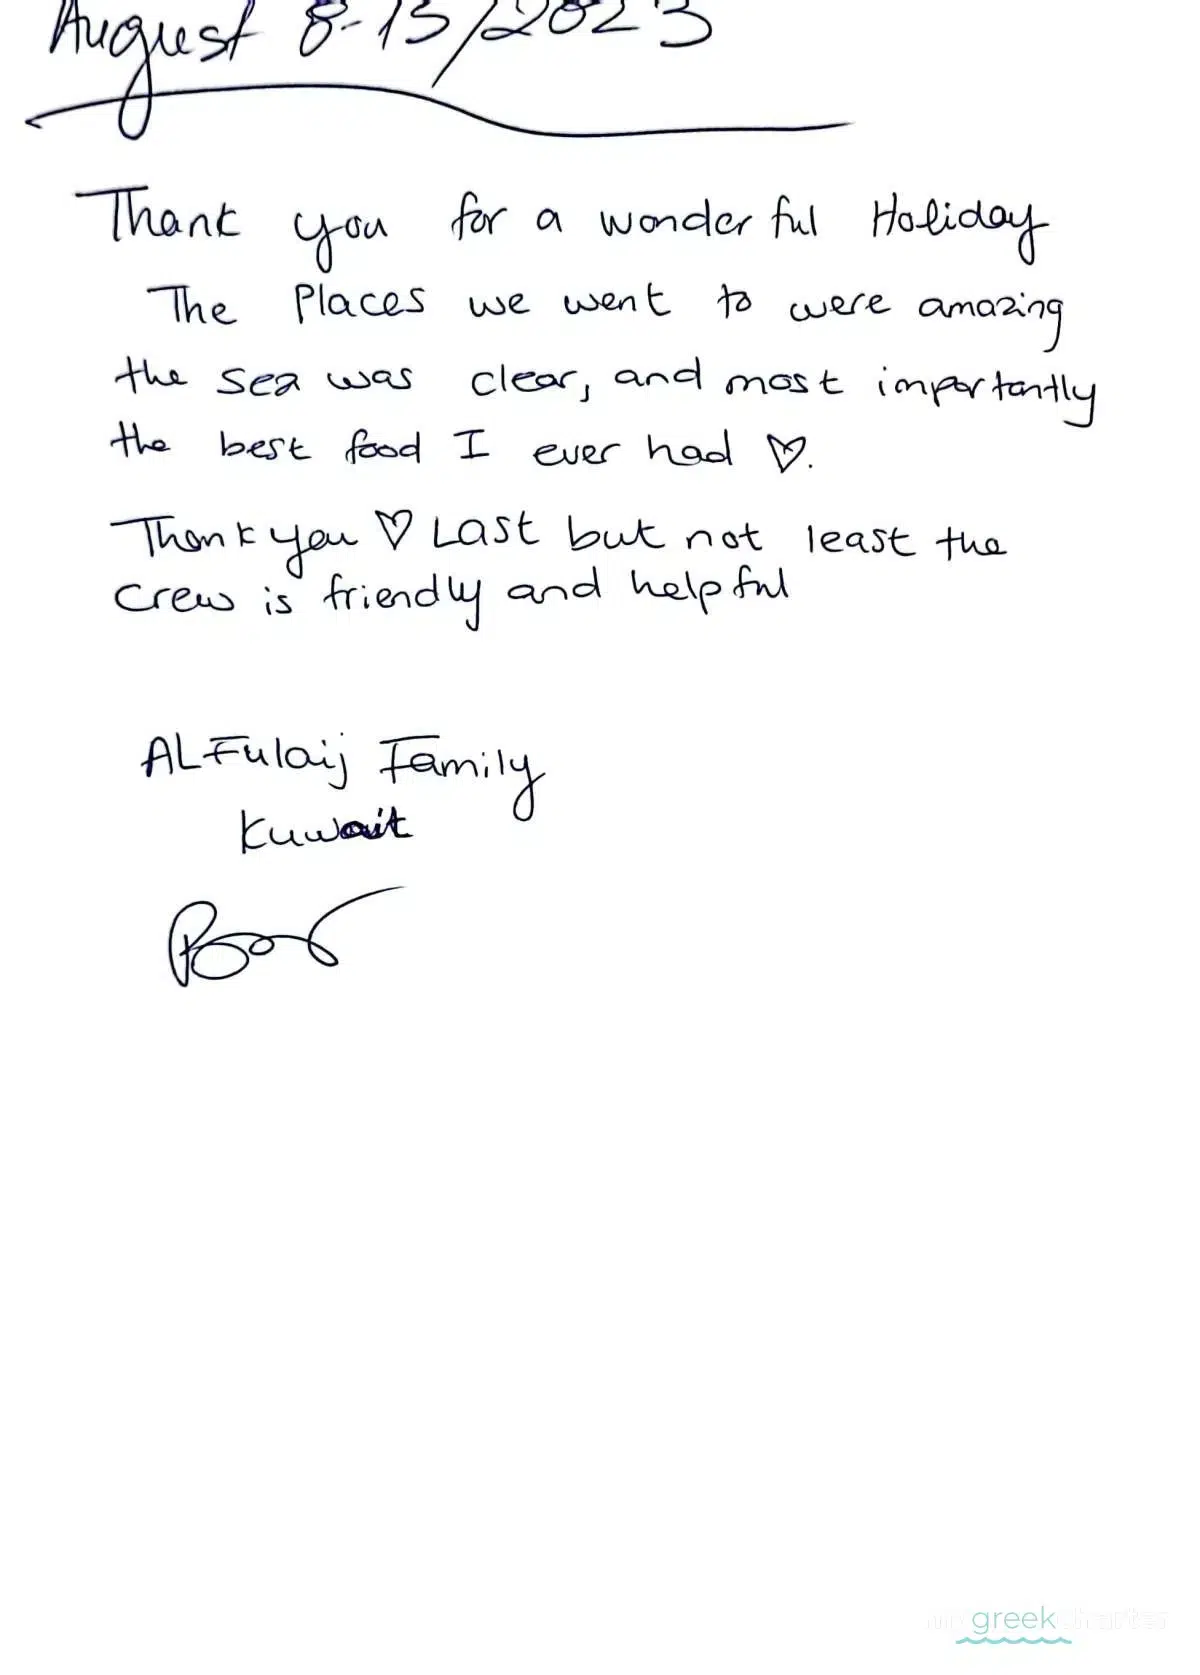 August 8-15/2023
Thank you for a wonderful Holiday
The Places we went to were amazing
the sea was clear, and most importantly
the best food I ever had ♡.
Thank you ♡ Last but not least the
crew is friendly and helpful
ALFulaij Family
Kuwait
my greek charter